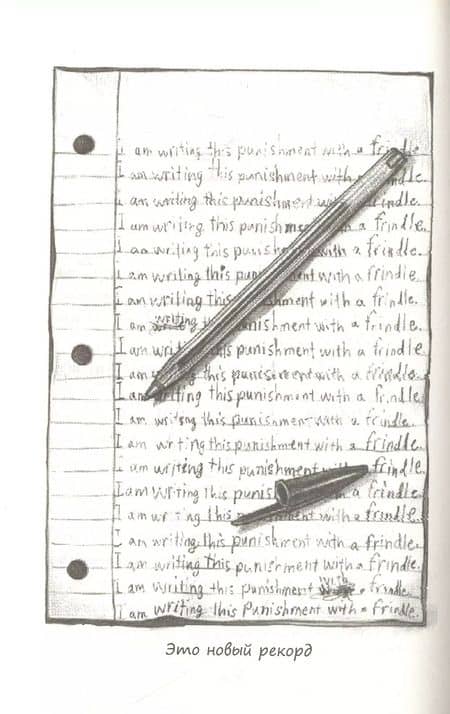 I am writing this punishment with a frindle.
I am writing this punishment with a frindle.
I am writing this punishment with a frindle.
I am writing this punishment with a frindle.
I am writing this punishment with a frindle.
I am writing this punishment with a frindle.
I am writing this punishment with a frindle.
I am writing this punishment with a frindle.
I am writing this punishment with a frindle.
I am writing this punishment with a frindle.
I am writing this punishment with a frindle.
I am writing this punishment with a frindle.
I am writing this punishment with a frindle.
I am writing this punishment with a frindle.
I am writing this punishment with a frindle.
I am writing this punishment with a frindle.
I am writing this punishment with a frindle.
I am writing this punishment with a frindle.
I am writing this punishment with a frindle.
I am writing this Punishment with a frindle.
Это новый рекорд